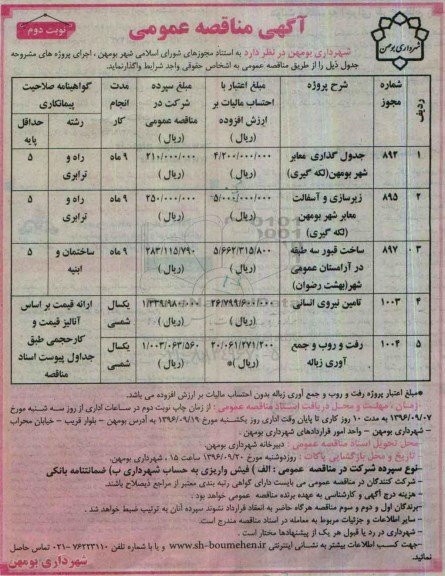 آگهی مناقصه عمومی
نوبت دوم
شهرداری بومهن
شهرداری بومهن در نظر دارد به استناد مجوزهای شورای اسلامی شهر بومهن ، اجرای پروژه های مشروحه
جدول ذیل را از طریق مناقصه عمومی به اشخاص حقوقی واجد شرایط واگذار نماید.
ردیف | شماره مجوز | شرح پروژه | مبلغ اعتبار با احتساب مالیات بر ارزش افزوده (ریال) | مبلغ سپرده شرکت در مناقصه عمومی (ریال) | مدت انجام کار | گواهینامه صلاحیت پیمانکاری رشته | حداقل پایه
۱ | ۸۹۲ | جدول گذاری معابر شهر بومهن(لکه گیری) | ۴/۲۰۰/۰۰۰/۰۰۰ (ریال) | ۲۱۰/۰۰۰/۰۰۰ (ریال) | ۹ ماه | راه و ترابری | ۵
۲ | ۸۹۵ | زیرسازی و آسفالت معابر شهر بومهن (لکه گیری) | ۵/۰۰۰/۰۰۰/۰۰۰ (ریال) | ۲۵۰/۰۰۰/۰۰۰ (ریال) | ۹ ماه | راه و ترابری | ۵
۳ | ۸۹۷ | ساخت قبور سه طبقه در آرامستان عمومی شهر(بهشت رضوان) | ۵/۶۶۲/۳۱۵/۸۰۰ (ریال) | ۲۸۳/۱۱۵/۷۹۰ (ریال) | ۹ ماه | ساختمان و ابنیه | ۵
۴ | ۱۰۰۳ | تامین نیروی انسانی | ۲۶/۷۹۹/۶۰۰/۰۰۰ (ریال) | ۱/۳۳۹/۹۸۰/۰۰۰ (ریال) | یکسال شمسی | ارائه قیمت بر اساس آنالیز قیمت و کارحجمی طبق جداول پیوست اسناد مناقصه
۵ | ۱۰۰۴ | رفت و روب و جمع آوری زباله | ۲۰/۰۶۱/۲۷۱/۲۰۰ (ریال)* | ۱/۰۰۳/۰۶۳/۵۶۰ (ریال) | یکسال شمسی
*مبلغ اعتبار پروژه رفت و روب و جمع آوری زباله بدون احتساب مالیات بر ارزش افزوده می باشد.
-زمان ، مهلت و محل دریافت اسناد مناقصه عمومی : از زمان چاپ نوبت دوم در ساعات اداری از روز سه شنبه مورخ
۱۳۹۶/۰۹/۰۷ به مدت ۱۰ روز کاری تا پایان وقت اداری روز یکشنبه مورخ ۱۳۹۶/۰۹/۱۹ به آدرس بومهن – بلوار قریب – خیابان محراب
– شهرداری بومهن – واحد امور قراردادهای شهرداری بومهن .
محل تحویل اسناد مناقصه عمومی : دبیرخانه شهرداری بومهن.
- تاریخ و محل بازگشایی پاکات : روز دوشنبه مورخ ۱۳۹۶/۰۹/۲۰ ساعت ۱۵ ، شهرداری بومهن.
نوع سپرده شرکت در مناقصه عمومی : الف ) فیش واریزی به حساب شهرداری ب) ضمانتنامه بانکی
- شرکت کنندگان در مناقصه عمومی می بایست دارای گواهی رتبه بندی معتبر از مراجع ذیصلاح باشند.
- هزینه درج آگهی و کارشناسی به عهده برنده مناقصه عمومی خواهد بود .
-برندگان اول و دوم و سوم مناقصه هرگاه حاضر به انعقاد قرارداد نشوند سپرده آنان به ترتیب ضبط خواهد شد .
- سایر اطلاعات و جزئیات مربوط به معامله در اسناد مناقصه مندرج است.
- شهرداری در رد یا قبول هر یک از پیشنهادها مختار است .
-جهت کسب اطلاعات بیشتر به نشانی اینترنتی www.sh-boumehen.ir و یا با شماره تلفن ۷۶۲۲۳۱۱۰-۰۲۱ تماس حاصل
نمائید.
شهرداری بومهن